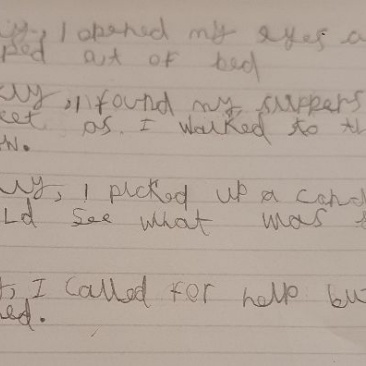 y, I opened my eyes a
ped out of bed
lly, I found my slippers
eet as I walked to th
n.
lly, I picked up a cand
ld see what was
y, I called for help bu
ed.